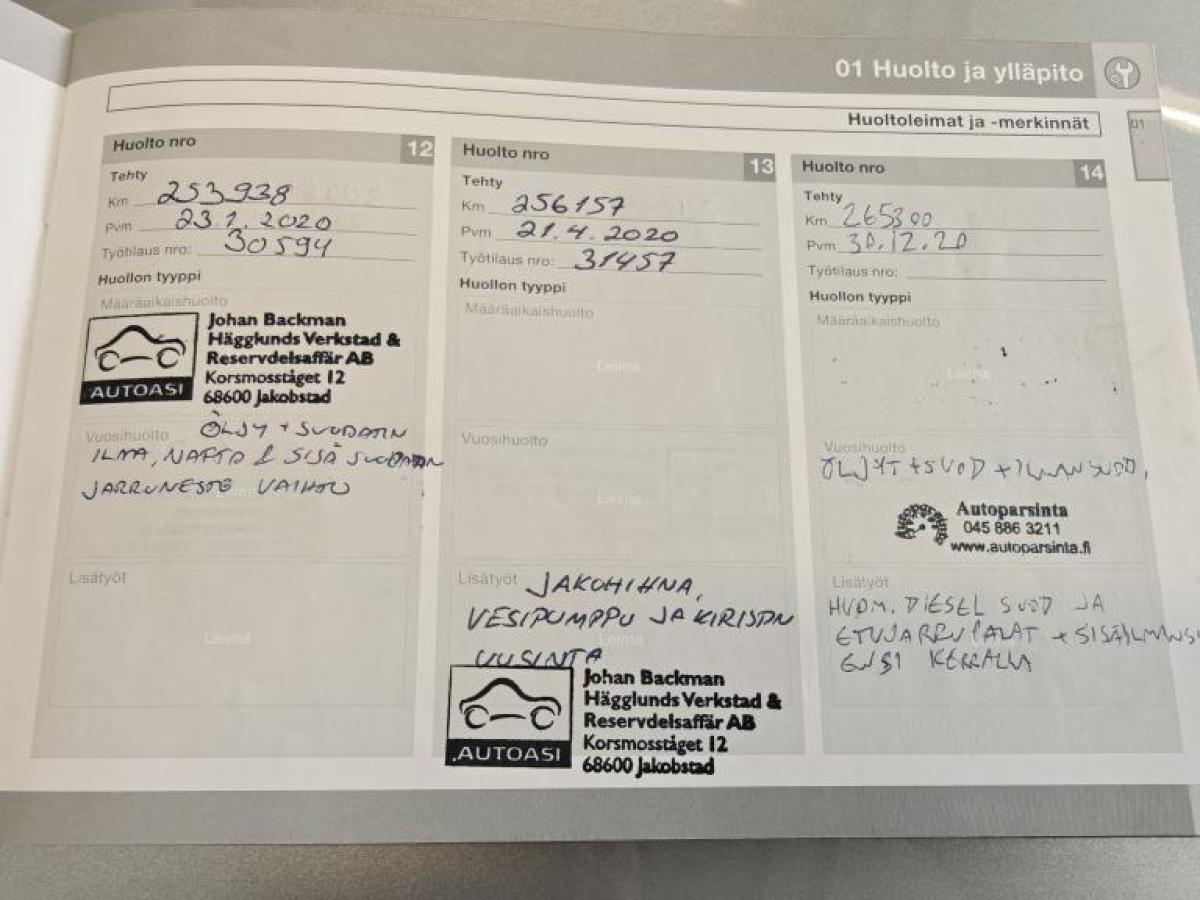 01 Huolto ja ylläpito
Huoltoleimat ja -merkinnät
01
Huolto nro 12
Tehty
Km 253938
Pvm 23.1.2020
Työtilaus nro: 30594
Huollon tyyppi
Määräaikaishuolto
AUTOASI
Johan Backman
Hägglunds Verkstad &
Reservdelsaffär AB
Korsmosståget 12
68600 Jakobstad
Vuosihuolto
ÖLJY + SUODATIN
ILMA, NAFTA & SISÄ SUODATIN
JARRUNESTE VAIHTO
Lisätyöt
Leima
Huolto nro 13
Tehty
Km 256157
Pvm 21.4.2020
Työtilaus nro: 31457
Huollon tyyppi
Määräaikaishuolto
Leima
Vuosihuolto
Leima
Lisätyöt
JAKOHIHNA,
VESIPUMPPU JA KIRISTIN
Leima
UUSINTA
AUTOASI
Johan Backman
Hägglunds Verkstad &
Reservdelsaffär AB
Korsmosståget 12
68600 Jakobstad
Huolto nro 14
Tehty
Km 265300
Pvm 30.12.20
Työtilaus nro:
Huollon tyyppi
Määräaikaishuolto
Leima
Vuosihuolto
ÖLJYT + SUOD + ILMANSUOD,
Autoparsinta
045 886 3211
www.autoparsinta.fi
Lisätyöt
HUOM. DIESEL SUOD JA
ETUJARRUPALAT + SISÄILMANS
ENSI KERRALLA